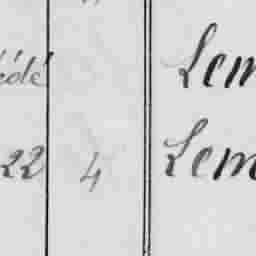 édé Lem
22 4 Lem